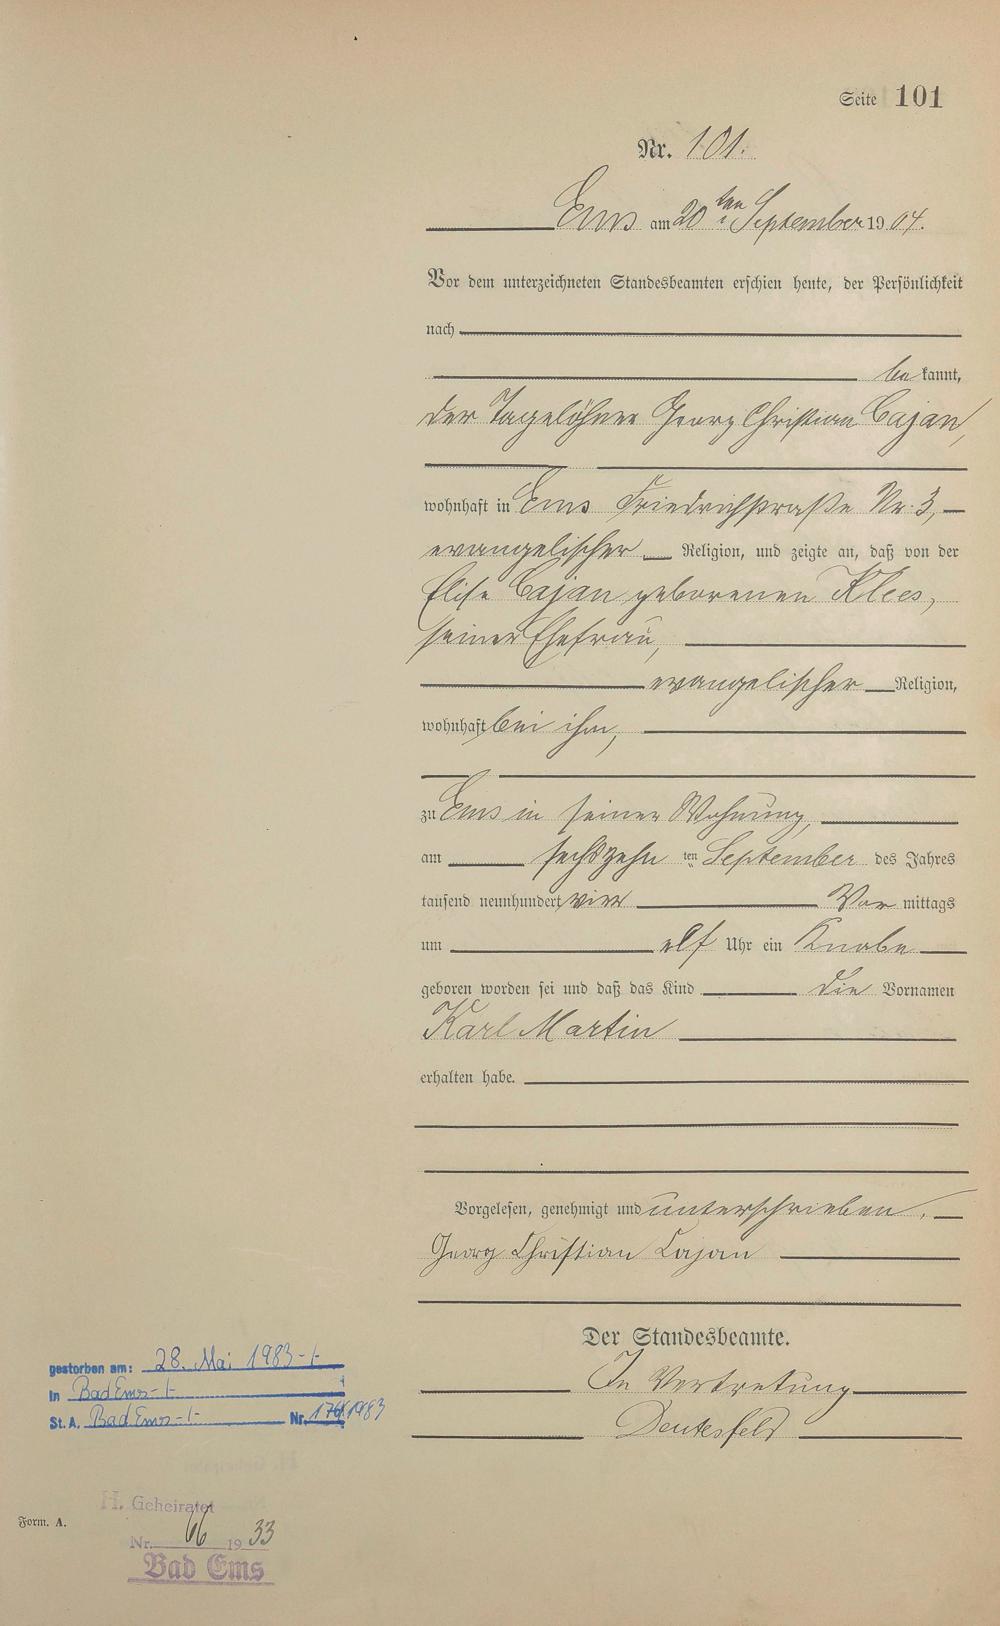 Seite 101
Nr. 101.
Ems am 20 ten September 1904.
Vor dem unterzeichneten Standesbeamten erschien heute, der Persönlichkeit
nach
be kannt,
der Tagelöhner Georg Christian Cajan,
wohnhaft in Ems Friedrichstraße Nr. 3,
evangelischer Religion, und zeigte an, daß von der
Elise Cajan geborenen Klees,
seiner Ehefrau,
evangelischer Religion,
wohnhaft bei ihm,
zu Ems in seiner Wohnung,
am sechszehn ten September des Jahres
tausend neunhundert vier Vor mittags
um elf Uhr ein Knabe
geboren worden sei und daß das Kind die Vornamen
Karl Martin
erhalten habe.
Vorgelesen, genehmigt und unterschrieben.
Georg Christian Cajan
Der Standesbeamte.
In Vertretung
Deutesfeld
gestorben am: 28. Mai 1983
in Bad Ems
St. A. Bad Ems Nr. /1983
H. Geheiratet
Nr. 66 1933
Bad Ems
Form. A.